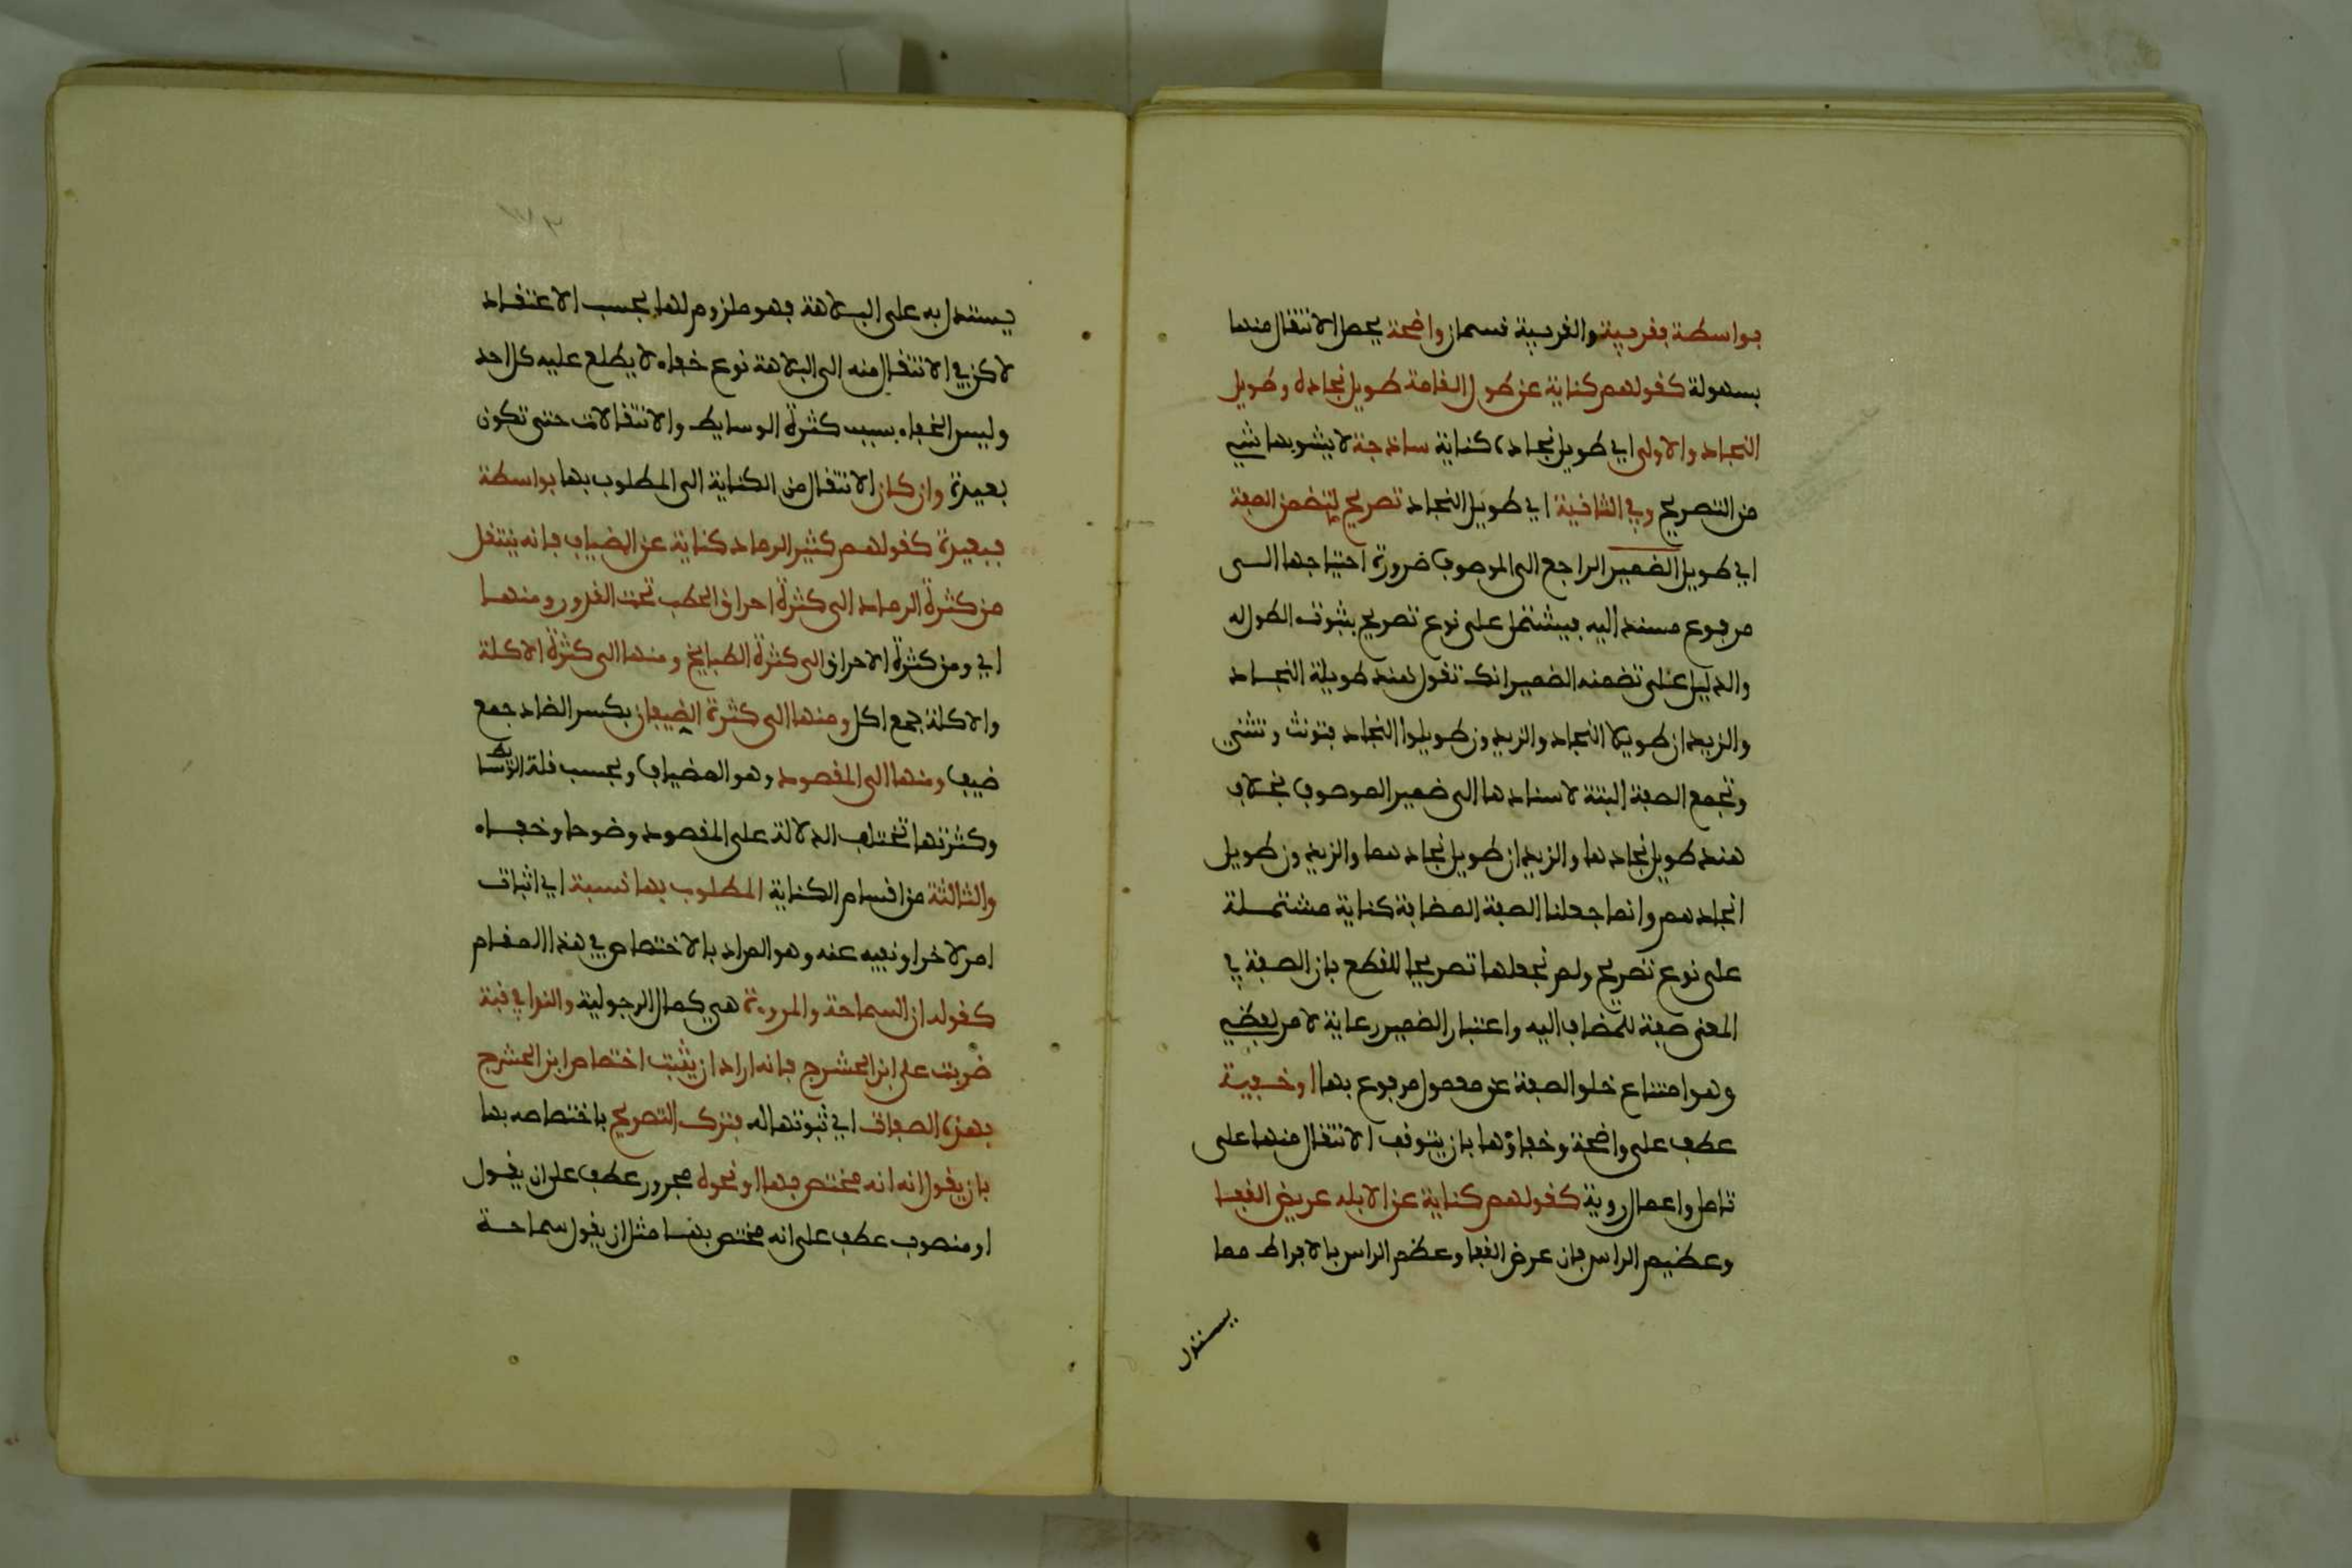 بواسطة فقريبة والقريبة قسمان واضحة يحصل الانتقال منها
بسهولة كقولهم كناية عن طول القامة طويل نجاده وطويل
النجاد والاولى اي طويل نجاده كناية ساذجة لا يشوبها شيء
من التصريح وفي الثانية اي طويل النجاد تصريح لتضمن الصفة
اي طويل الضمير الراجع الى الموصوف ضرورة احتياجها الى
مرفوع مسند اليه فيشتمل على نوع تصريح بثبوت الطول له
والدليل على تضمنه الضمير انك تقول هند طويلة النجاد
والزيدان طويلا النجاد والزيدون طويلوا النجاد فتونث وتثني
وتجمع الصفة البتة لاسنادها الى ضمير الموصوف بخلاف
هند طويل نجادها والزيدان طويل نجادهما والزيدون طويل
انجادهم وانما جعلنا الصفة المضافة كناية مشتملة
على نوع تصريح ولم نجعلها تصريحا للقطع بان الصفة في
المعنى صفة للمضاف اليه واعتبار الضمير رعاية لامر لفظي
وهو امتناع خلو الصفة عن معمول مرفوع بها او خفية
عطف على واضحة وخفاؤها بان يتوقف الانتقال منها على
تامل واعمال روية كقولهم كناية عن الابله عريض القفا
وعظيم الراس فان عرض القفا وعظم الراس بالافراط مما
يستدل
يستدل به على البلاهة فهو ملزوم لها بحسب الاعتقاد
لاكن في الانتقال منه الى البلاهة نوع خفاء لا يطلع عليه كل احد
وليس الخفاء بسبب كثرة الوسايط والانتقالات حتى تكون
بعيدة وان كان الانتقال من الكناية الى المطلوب بها بواسطة
فبعيدة كقولهم كثير الرماد كناية عن المضياف فانه ينتقل
من كثرة الرماد الى كثرة احراق الحطب تحت القدور ومنها
اي ومن كثرة الاحراق الى كثرة الطبايخ ومنها الى كثرة الاكلة
والاكلة جمع اكل ومنها الى كثرة الضيفان بكسر الضاد جمع
ضيف ومنها الى المقصود وهو المضياف وبحسب قلة الوسايط
وكثرتها تختلف الدلالة على المقصود وضوحا وخفاء
والثالثة من اقسام الكناية المطلوب بها نسبة اي اثبات
امر لاخر او نفيه عنه وهو المراد بالاختصاص في هذا المقام
كقوله ان السماحة والمروءة هي كمال الرجولية والنوا في قبة
ضربت على ابن الحشرج فانه اراد ان يثبت اختصاص ابن الحشرج
بهذه الصفات اي ثبوتها له فترك التصريح باختصاصه بها
بان يقول انه انه مختص بها او نحوه مجرور عطف على ان يقول
او منصوب عطف على انه مختص بها مثل ان يقول سماحة